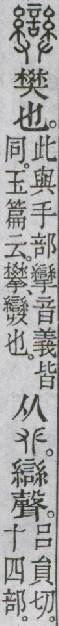 𢍶樊也。
此與手部攣音義皆
同。玉篇云。攀、𢍶也。
从𠬜。䜌聲。
呂員切。
十四部。